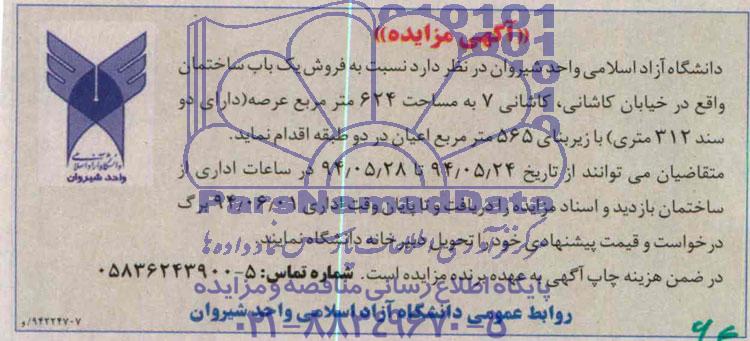 «آگهی مزایده»
دانشگاه آزاد اسلامی واحد شیروان در نظر دارد نسبت به فروش یک باب ساختمان
واقع در خیابان کاشانی، کاشانی ۷ به مساحت ۶۲۴ متر مربع عرصه(دارای دو
سند ۳۱۲ متری) با زیربنای ۵۶۵ متر مربع اعیان در دو طبقه اقدام نماید.
متقاضیان می توانند از تاریخ ۹۴٫۰۵٫۲۴ تا ۹۴٫۰۵٫۲۸ در ساعات اداری از
ساختمان بازدید و اسناد مزایده را دریافت و تا پایان وقت اداری ۹۴٫۰۶٫۰۱ برگ
درخواست و قیمت پیشنهادی خود را تحویل دبیرخانه دانشگاه نمایند.
در ضمن هزینه چاپ آگهی به عهده برنده مزایده است. شماره تماس: ۵-۰۵۸۳۶۲۴۳۹۰۰
روابط عمومی دانشگاه آزاد اسلامی واحد شیروان
دانشگاه آزاد اسلامی
واحد شیروان
۹۴۲۲۴۷۰۷/و
ParsNamadData
پایگاه اطلاع رسانی مناقصه و مزایده
۰۲۱-۸۸۳۴۹۶۷۰-۵